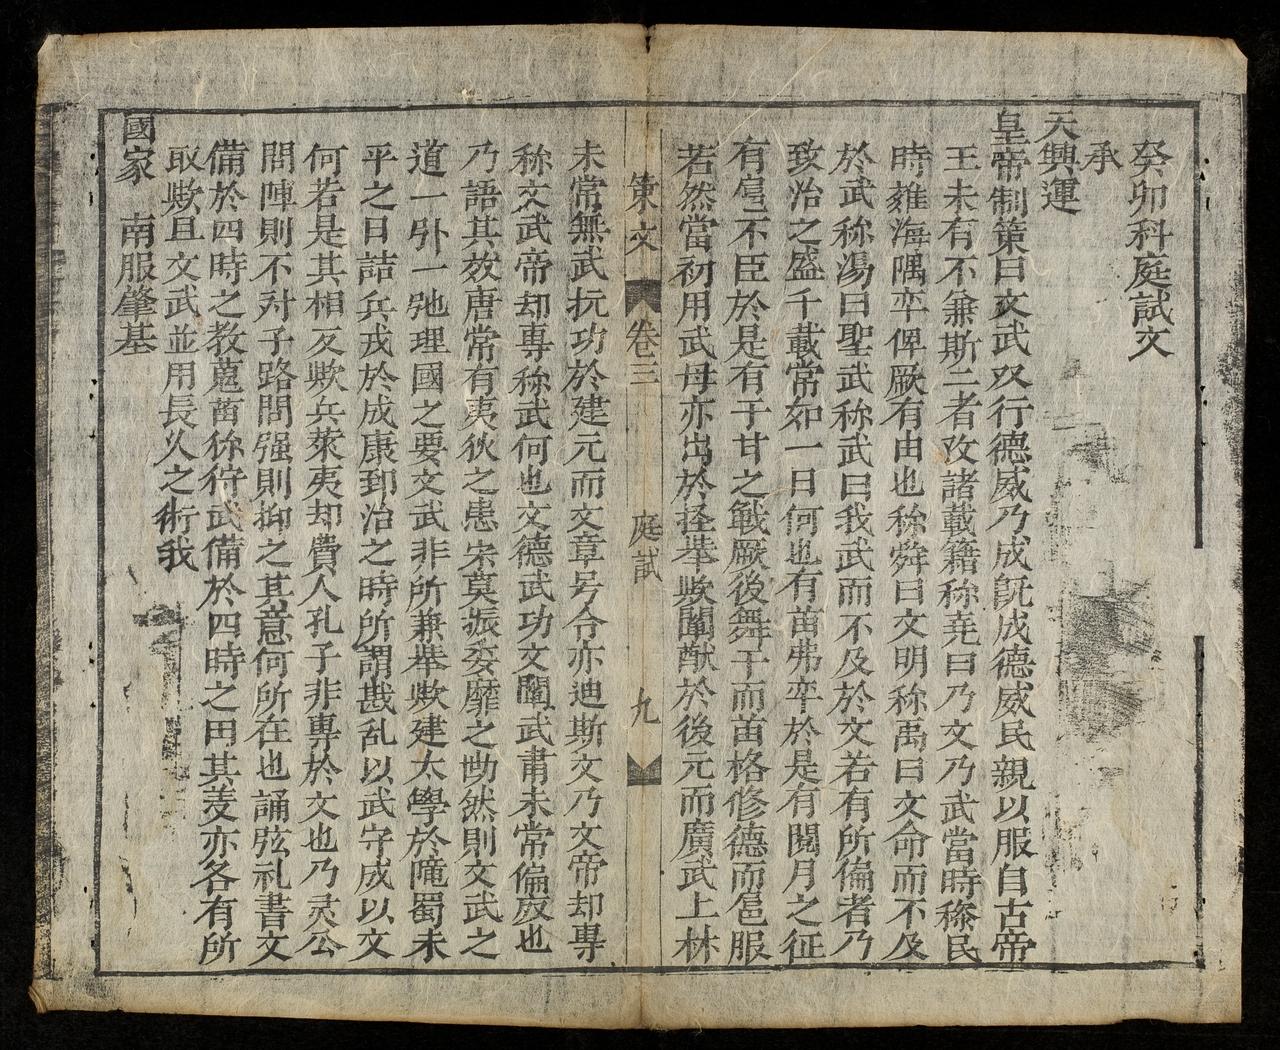 癸卯科庭試文
承
天興運
皇帝制策曰文武双行德威乃成旣成德威民親以服自古帝
王未有不兼斯二者攷諸載籍称堯曰乃文乃武當時黎民
時雍海隅卒俾厥有由也称舜曰文明称禹曰文命而不及
於武称湯曰聖武称武曰我武而不及於文若有所偏者乃
致治之盛千載常如一日何也有苗弗卒於是有閱月之征
有扈不臣於是有于甘之戰厥後舞干而苗格修德而扈服
若然當初用武毋亦出於𢪸舉歟闡猷於後元而廣武上林
策文 卷三 庭試 九
未常無武抗功於建元而文章号令亦迪斯文乃文帝却專
称文武帝却專称武何也文德武功文闡武肅未常偏廢也
乃語其效唐常有夷狄之患宋莫振委靡之勢然則文武之
道一張一弛理國之要文武非所兼舉歟建太學於隴蜀未
平之日詰兵戎於成康郅治之時所謂戡乱以武守成以文
何若是其相反歟兵萊夷却費人孔子非專於文也乃灵公
問陣則不对子路問强則抑之其意何所在也誦弦礼書文
備於四時之教蒐苗狝狩武備於四時之田其羑亦各有所
取歟且文武並用長久之術我
國家 南服肇基